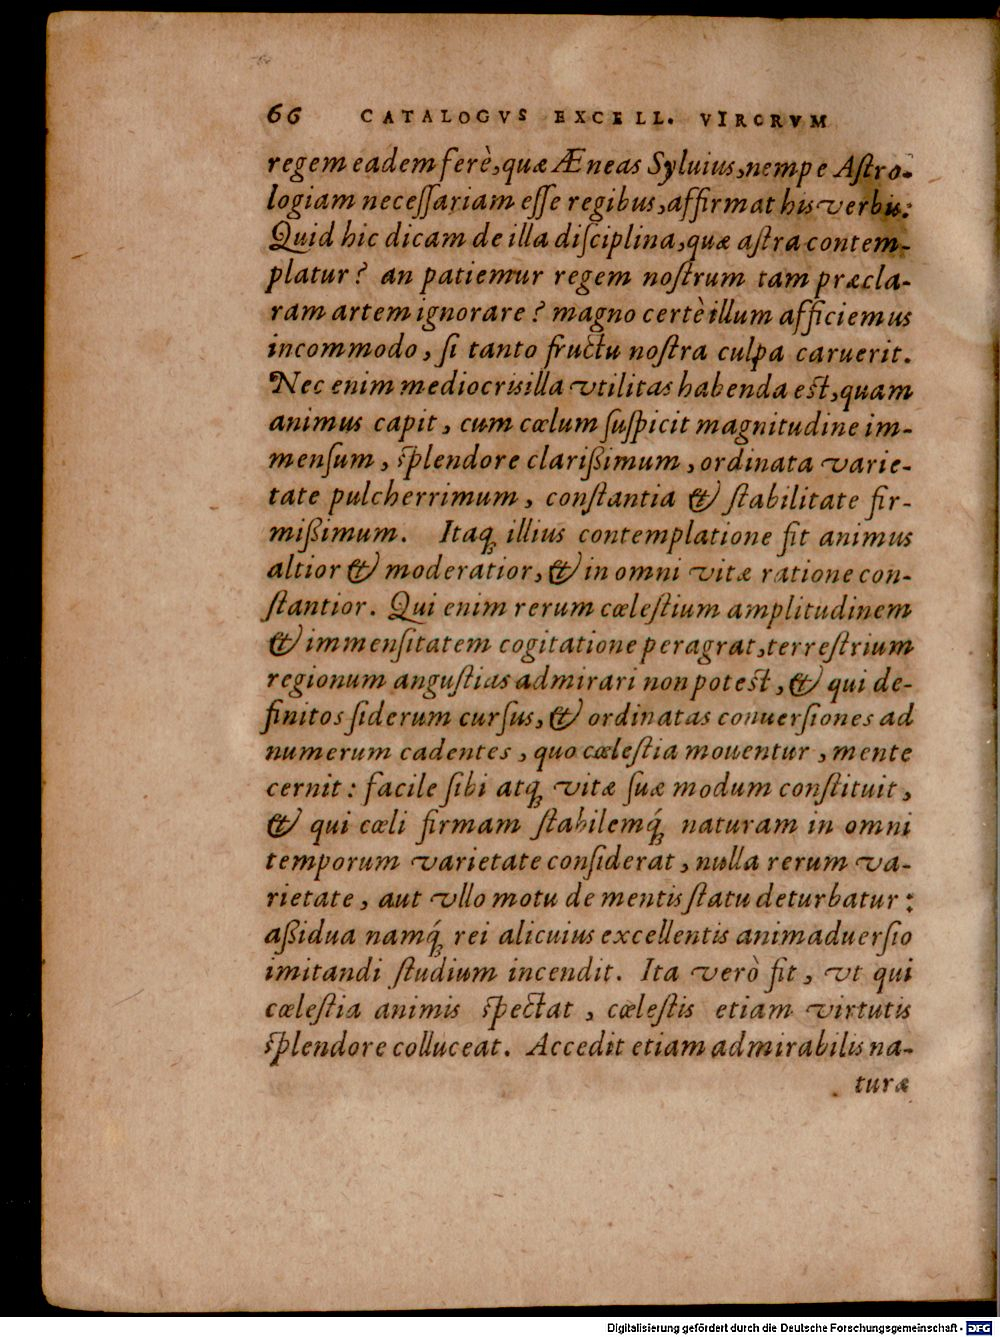 66 CATALOGVS EXCELL. VIRORVM
regem eadem ferè, quæ Æneas Syluius, nempe Aſtro-
logiam neceſſariam eſſe regibus, affirmat his verbis:
Quid hic dicam de illa diſciplina, quæ aſtra contem-
platur? an patiemur regem noſtrum tam præcla-
ram artem ignorare? magno certè illum afficiemus
incommodo, ſi tanto fructu noſtra culpa caruerit.
Nec enim mediocris illa vtilitas habenda est, quam
animus capit, cum cœlum ſuſpicit magnitudine im-
menſum, ſplendore clarißimum, ordinata varie-
tate pulcherrimum, conſtantia & ſtabilitate fir-
mißimum. Itaq; illius contemplatione fit animus
altior & moderatior, & in omni vitæ ratione con-
ſtantior. Qui enim rerum cœleſtium amplitudinem
& immenſitatem cogitatione peragrat, terreſtrium
regionum anguſtias admirari non potest, & qui de-
finitos ſiderum curſus, & ordinatas conuerſiones ad
numerum cadentes, quo cœleſtia mouentur, mente
cernit: facile ſibi atq; vitæ ſuæ modum conſtituit,
& qui cœli firmam ſtabilemq́; naturam in omni
temporum varietate conſiderat, nulla rerum va-
rietate, aut vllo motu de mentis ſtatu deturbatur:
aßidua namq́; rei alicuius excellentis animaduerſio
imitandi ſtudium incendit. Ita verò fit, vt qui
cœleſtia animis ſpectat, cœleſtis etiam virtutis
ſplendore colluceat. Accedit etiam admirabilis na-
turæ
Digitalisierung gefördert durch die Deutsche Forschungsgemeinschaft - DFG